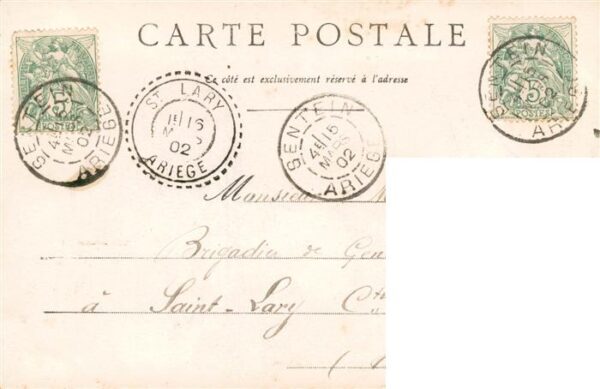 CARTE POSTALE
Ce côté est exclusivement réservé à l'adresse
SENTEIN
MARS
02
ARIEGE
5
POSTES
ST LARY
16
02
ARIEGE
SENTEIN
4E 15
MARS
02
ARIEGE
SENTEIN
02
ARIEGE
5
POSTES
Monsieur
Brigadier de
à Saint-Lary